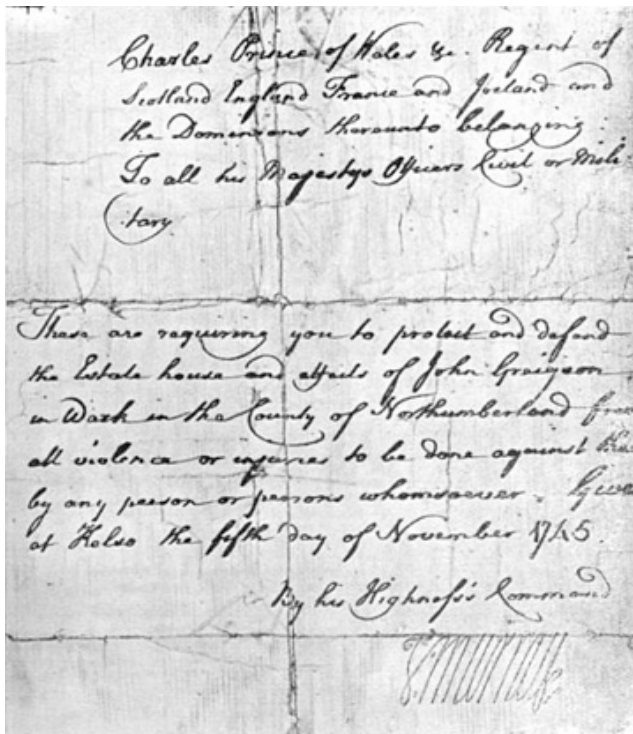 Charles Prince of Wales &c. Regent of
Scotland England France and Ireland and
the Domenions thereunto belonging
To all his Majestys Officers Civil or Mili
tary
These are requiring you to protect and defend
the Estate house and effects of John Graigson
in Wark in the County of Northumberland from
all violence or injuries to be done against
by any person or persons whomsoever
at Kelso the fifth day of November 1745.
By his Highness's Command